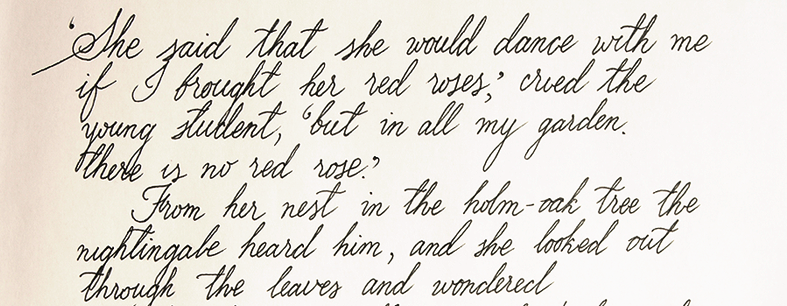 ‘She said that she would dance with me
if I brought her red roses,’ cried the
young student, ‘but in all my garden.
there is no red rose.’
From her nest in the holm-oak tree the
nightingale heard him, and she looked out
through the leaves and wondered